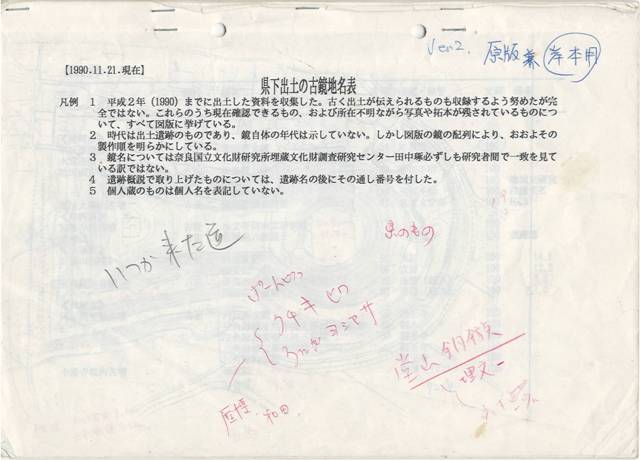 Ver2. 原版兼 岸本用
【1990.11.21.現在】
県下出土の古鏡地名表
凡例 1 平成2年(1990)までに出土した資料を収集した。古く出土が伝えられるものも収録するよう努めたが完
全ではない。これらのうち現在確認できるもの、および所在不明ながら写真や拓本が残されているものについ
いて、すべて図版に挙げている。
2 時代は出土遺跡のものであり、鏡自体の年代は示していない。しかし図版の鏡の配列により、おおよその
製作順を明らかにしている。
3 鏡名については奈良国立文化財研究所埋蔵文化財調査研究センター田中琢必ずしも研究者間で一致を見て
いる訳ではない。
4 遺跡概説で取り上げたものについては、遺跡名の後にその通し番号を付した。
5 個人蔵のものは個人名を表記していない。
県のもの
いつか来た道
堂山 銅鏃
埋文一
和田